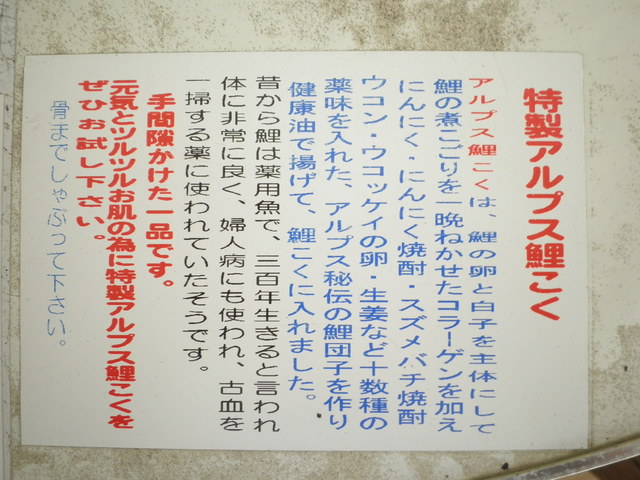 特製アルプス鯉こく
アルプス鯉こくは、鯉の卵と白子を主体にして
鯉の煮こごりを一晩ねかせたコラーゲンを加え
にんにく・にんにく焼酎・スズメバチ焼酎
ウコン・ウコッケイの卵・生姜など十数種の
薬味を入れた、アルプス秘伝の鯉団子を作り
健康油で揚げて、鯉こくに入れました。
昔から鯉は薬用魚で、三百年生きると言われ
体に非常に良く、婦人病にも使われ、古血を
一掃する薬に使われていたそうです。
手間隙かけた一品です。
元気とツルツルお肌の為に特製アルプス鯉こくを
ぜひお試し下さい。
骨までしゃぶって下さい。